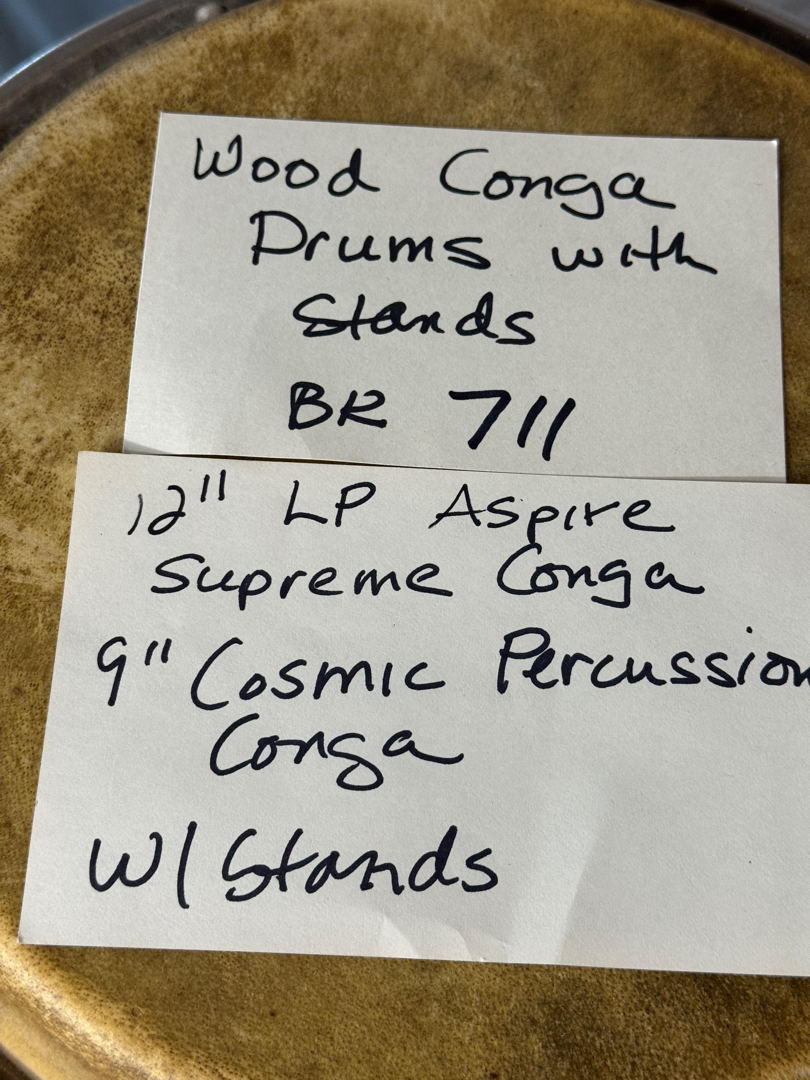 Wood Conga
Drums with
Stands
BR 711
12" LP Aspire
Supreme Conga
9" Cosmic Percussion
Conga
W/ Stands